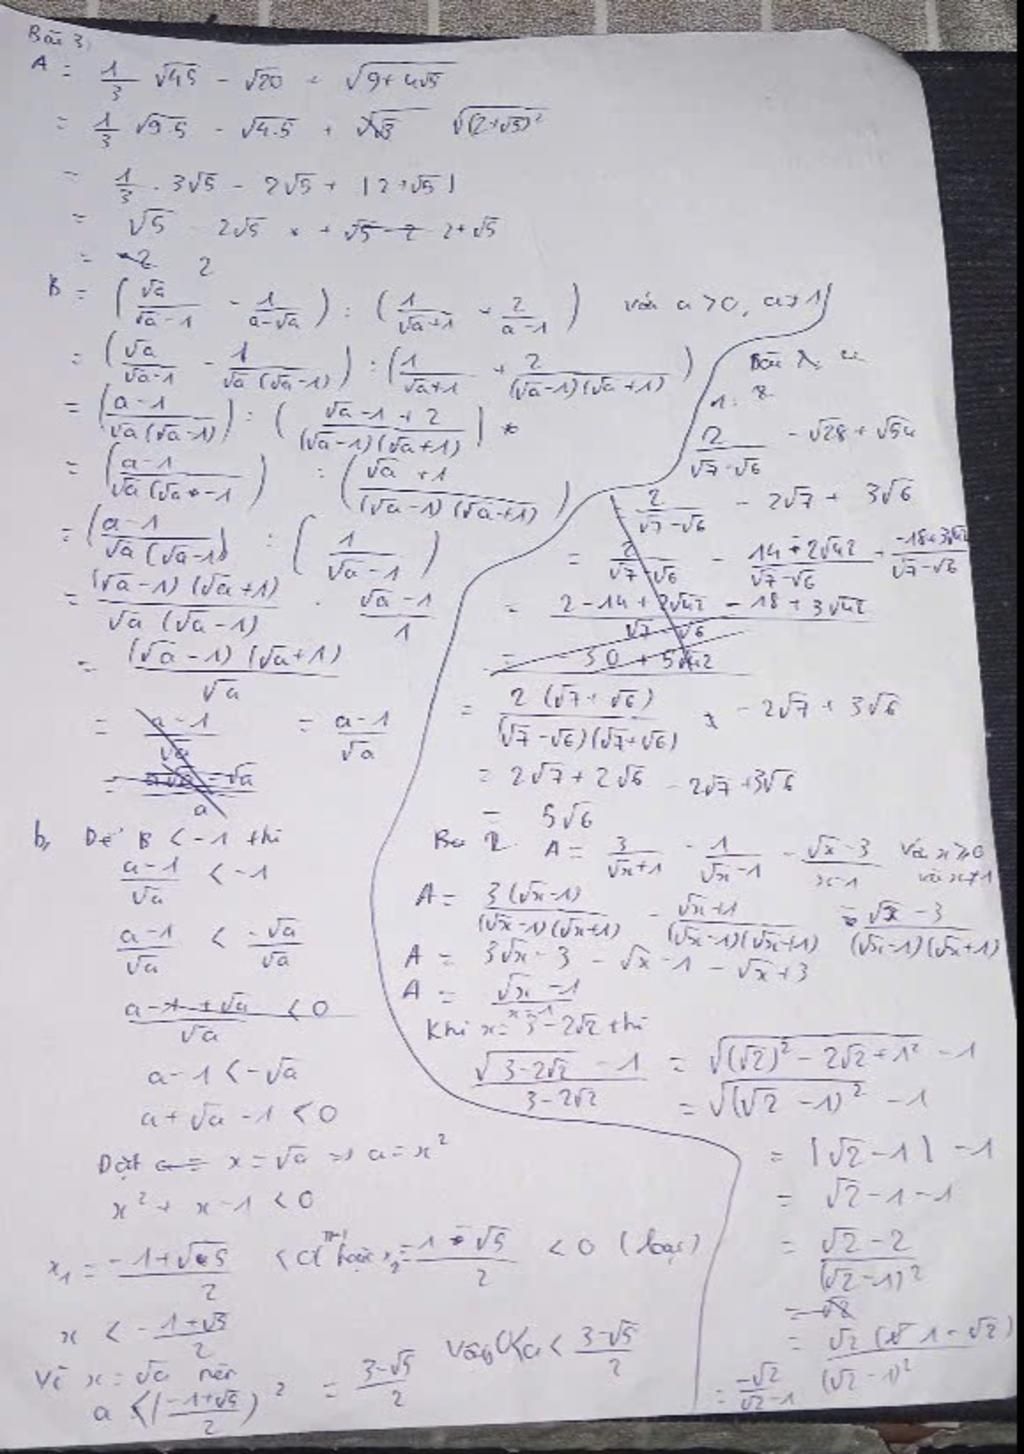 Bài 3,
A = 1/3 √45 - √20 + √(9+4√5)
= 1/3 √9.5 - √4.5 + √(2+√5)²
= 1/3 . 3√5 - 2√5 + |2+√5|
= √5 - 2√5 + 2+√5
= 2
B = (√a/(√a-1) - 1/(a-√a)) : (1/(√a+1) + 2/(a-1)) với a>0, a≠1
= (√a/(√a-1) - 1/(√a(√a-1))) : (1/(√a+1) + 2/((√a-1)(√a+1)))
= ((a-1)/(√a(√a-1))) : ((√a-1+2)/((√a-1)(√a+1)))
= ((a-1)/(√a(√a-1))) : ((√a+1)/((√a-1)(√a+1)))
= ((a-1)/(√a(√a-1))) : (1/(√a-1))
= (√a-1)(√a+1)/(√a(√a-1)) . (√a-1)/1
= (√a-1)(√a+1)/√a
= (a-1)/√a = (a-1)/√a
b, Để B < -1 thì
(a-1)/√a < -1
(a-1)/√a < -√a/√a
(a-1+√a)/√a < 0
a-1 < -√a
a+√a-1 < 0
Đặt x = √a => a = x²
x² + x - 1 < 0
x₁ = (-1+√5)/2 hoặc x₂ = (-1-√5)/2 < 0 (loại)
x < (-1+√5)/2
Vì x = √a nên
a < ((-1+√5)/2)² = (3-√5)/2 Vậy 0<a < (3-√5)/2
2/(√7-√6) - √28 + √54
= 2/(√7-√6) - 2√7 + 3√6
= 2/(√7-√6) - (14+2√42)/(√7-√6) + (-18+3√42)/(√7-√6)
= (2-14+2√42-18+3√42)/(√7-√6)
= 30+5√42
= 2(√7+√6)/((√7-√6)(√7+√6)) - 2√7 + 3√6
= 2√7+2√6 - 2√7+3√6
= 5√6
Bài 2 A = 3/(√x+1) - 1/(√x-1) - (√x-3)/(x-1) với x≥0 và x≠1
A = 3(√x-1)/((√x-1)(√x+1)) - (√x+1)/((√x-1)(√x+1)) - (√x-3)/((√x-1)(√x+1))
A = 3√x-3-√x-1-√x+3
A = (√x-1)/(x-1)
Khi x = 3-2√2 thì
(√(3-2√2) - 1)/(3-2√2) = √((√2)²-2√2+1²) - 1
= √(√2-1)² - 1
= |√2-1| - 1
= √2-1-1
= (√2-2)/(√2-1)²
= √2(1-√2)/(√2-1)²
= -√2/(√2-1)